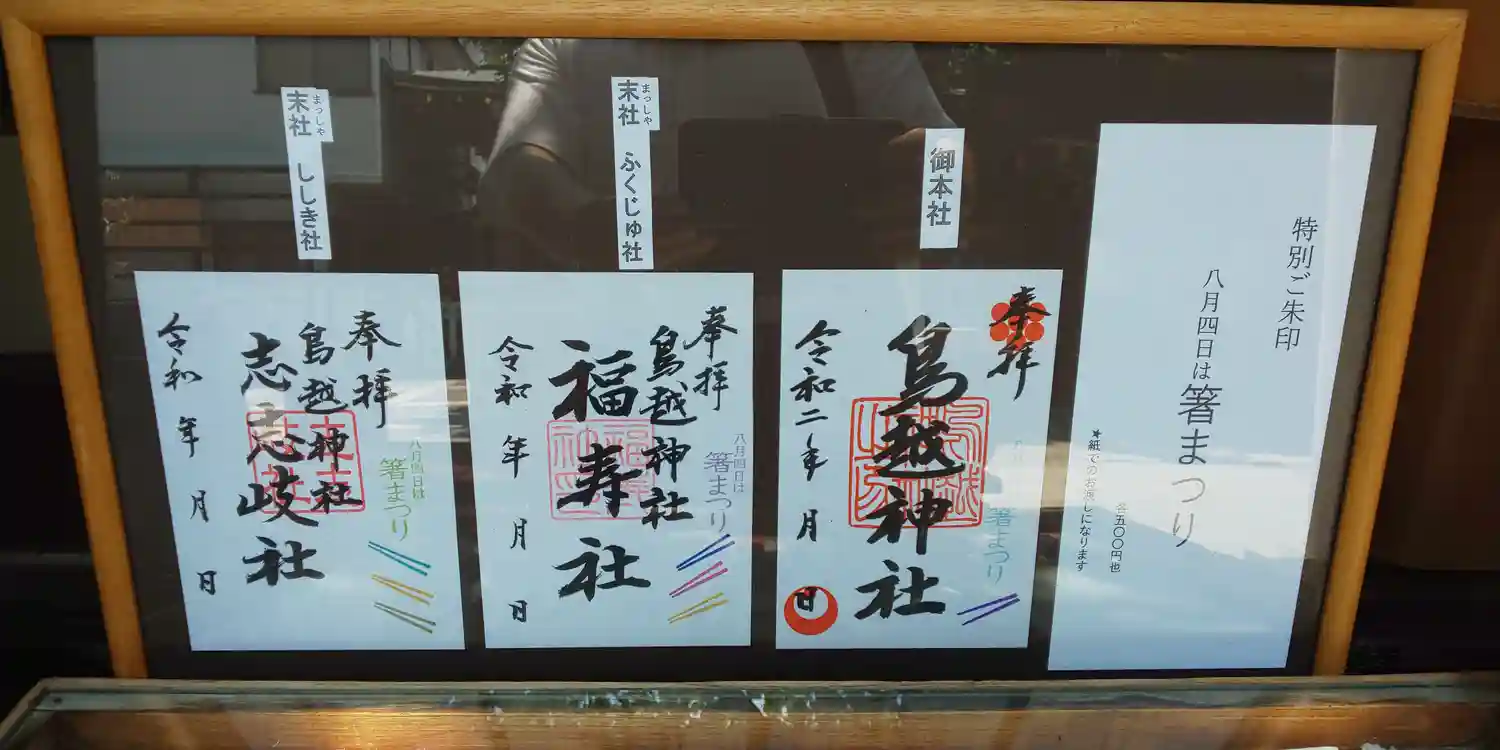 特別ご朱印
八月四日は箸まつり
各五〇〇円也
★紙でのお渡しになります
御本社
奉拝
鳥越神社
箸まつり
令和二年 月 日
末社 ふくじゅ社
まっしゃ
奉拝
鳥越神社
八月四日は
箸まつり
福寿社
令和 年 月 日
末社 ししき社
まっしゃ
奉拝
鳥越神社
八月四日は
箸まつり
志志岐社
令和 年 月 日